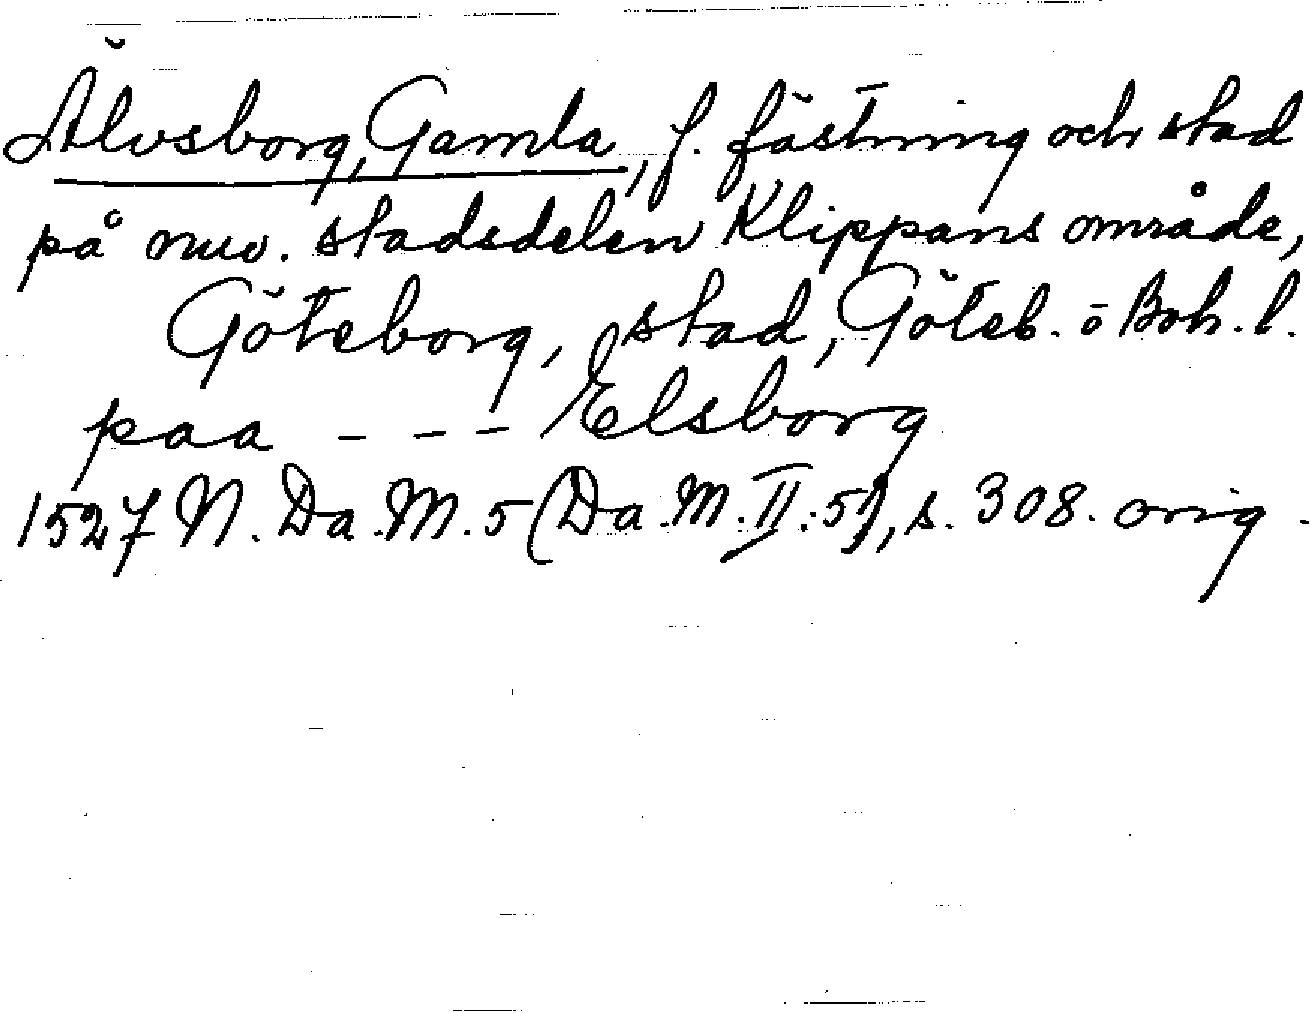 Älvsborg, Gamla, f. fästning och stad
på nuv. stadsdelen Klippans område,
Göteborg, stad, Göteb. o Boh. l.
paa - - - Elsborg
1527 N. Da. M. 5 (Da. M. II: 5), s. 308. orig.